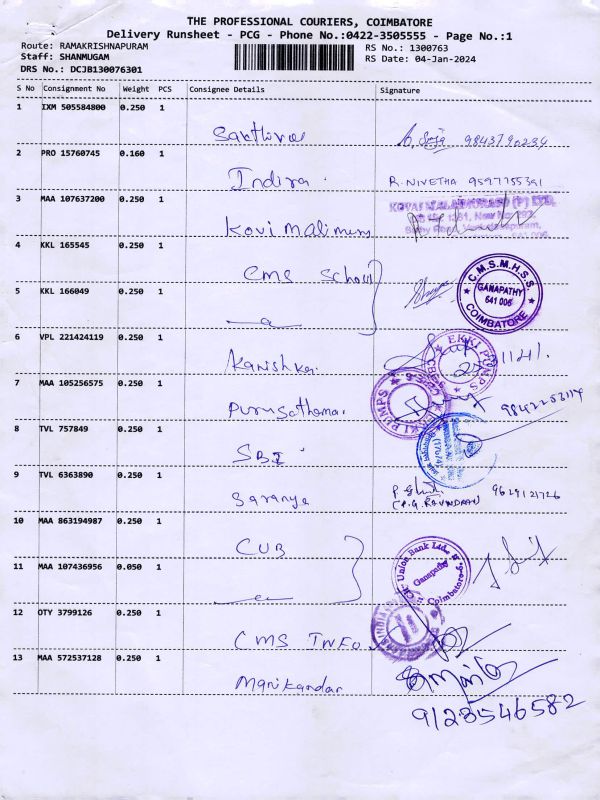 THE PROFESSIONAL COURIERS, COIMBATORE
Delivery Runsheet - PCG - Phone No.:0422-3505555 - Page No.:1
Route: RAMAKRISHNAPURAM
RS No.: 1300763
Staff: SHANMUGAM
RS Date: 04-Jan-2024
DRS No.: DCJB130076301
S No Consignment No Weight PCS Consignee Details Signature
1 IXM 505584800 0.250 1
Sakthivel 9843790234
2 PRO 15760745 0.160 1
Indira. R. NIVETHA 9597755391
3 MAA 107637200 0.250 1
Kovi Malimens
4 KKL 165545 0.250 1
CMS School
C.M.S.M.H.S.S. GANAPATHY 641 006 COIMBATORE
5 KKL 166049 0.250 1
6 VPL 221424119 0.250 1
Kanishka. EKKI PUMPS
7 MAA 105256575 0.250 1
Purusothoman EKKI PUMPS
8 TVL 757849 0.250 1
SBI
9 TVL 6363890 0.250 1
Saranya 9629121726
(P.G. RAVINDRAN)
10 MAA 863194987 0.250 1
CUB
11 MAA 107436956 0.050 1
City Union Bank Ltd. Ganapathy Coimbatore
12 OTY 3799126 0.250 1
CMS INFO
13 MAA 572537128 0.250 1
Manikandan
9123546582